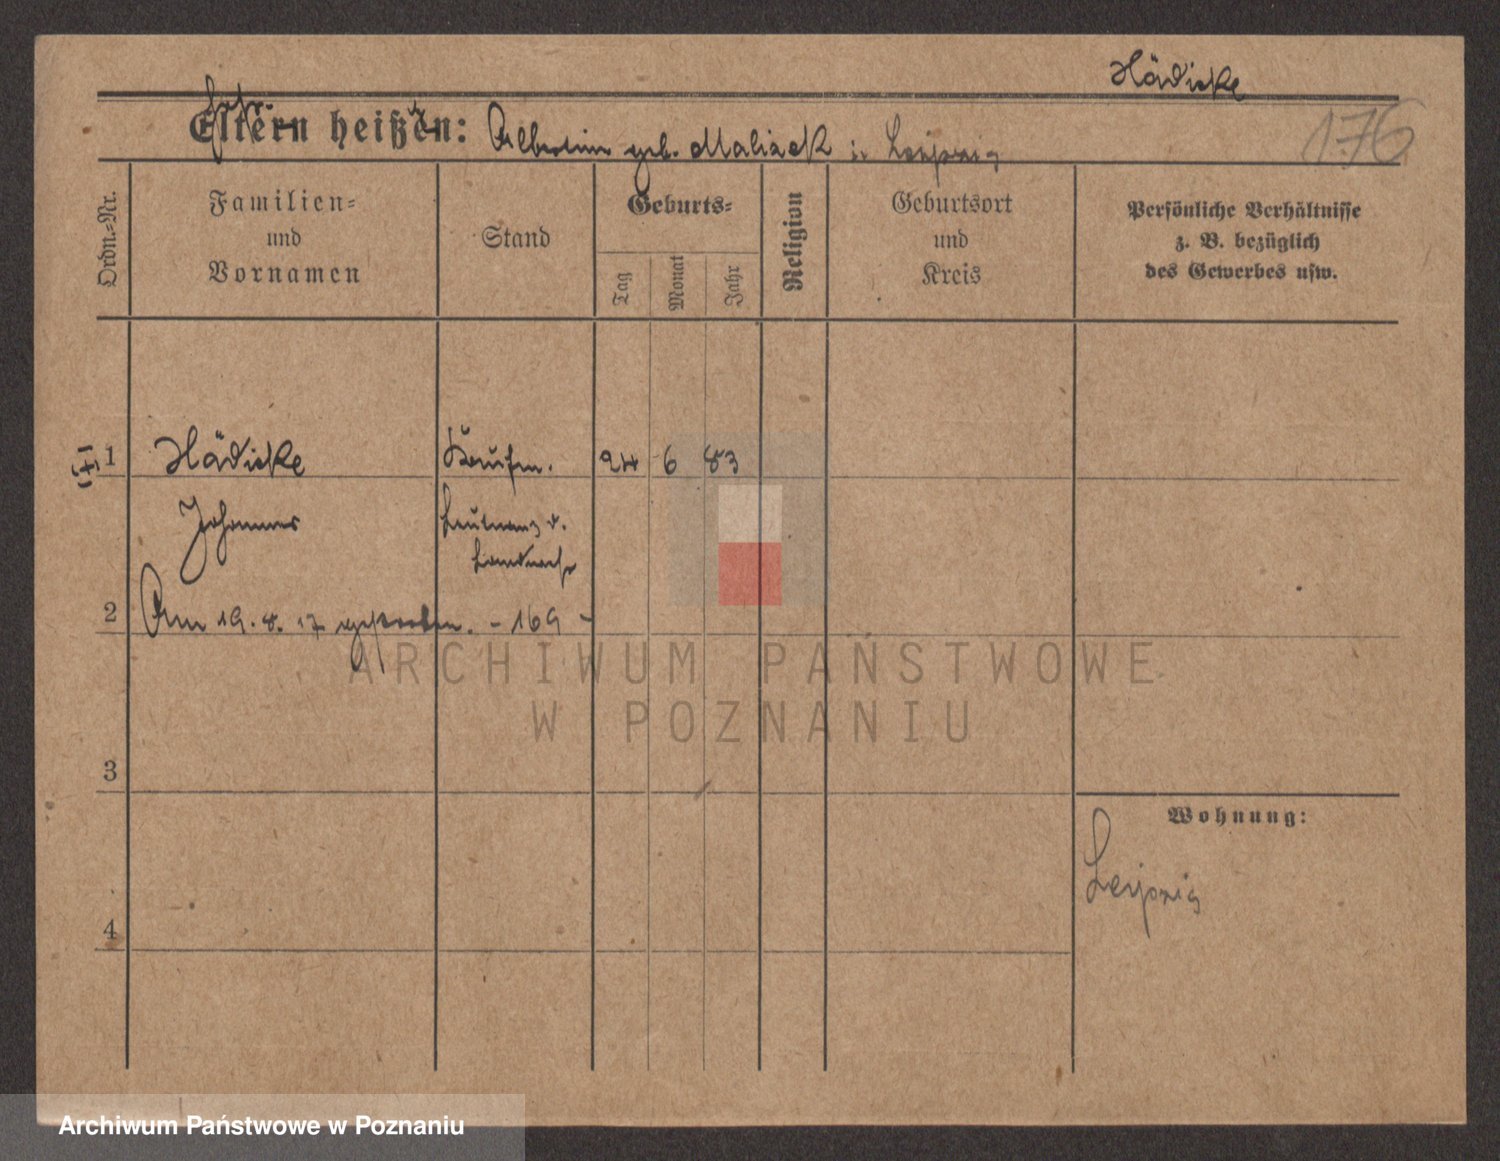 Hädicke
Eltern heißen: Albertine geb. Malizek in Leipzig
176
Ordn.-Nr.
Familien-
und
Vornamen
Stand
Geburts-
Tag
Monat
Jahr
Religion
Geburtsort
und
Kreis
Persönliche Verhältnisse
z. B. bezüglich
des Gewerbes usw.
1 Hädicke Kaufm. 24 6 83
Johannes Leutnant d.
Landwehr
2 Am 19. 8. 17 gestorben. - 169 -
ARCHIWUM PAŃSTWOWE
W POZNANIU
3
Wohnung:
Leipzig
4
Archiwum Państwowe w Poznaniu